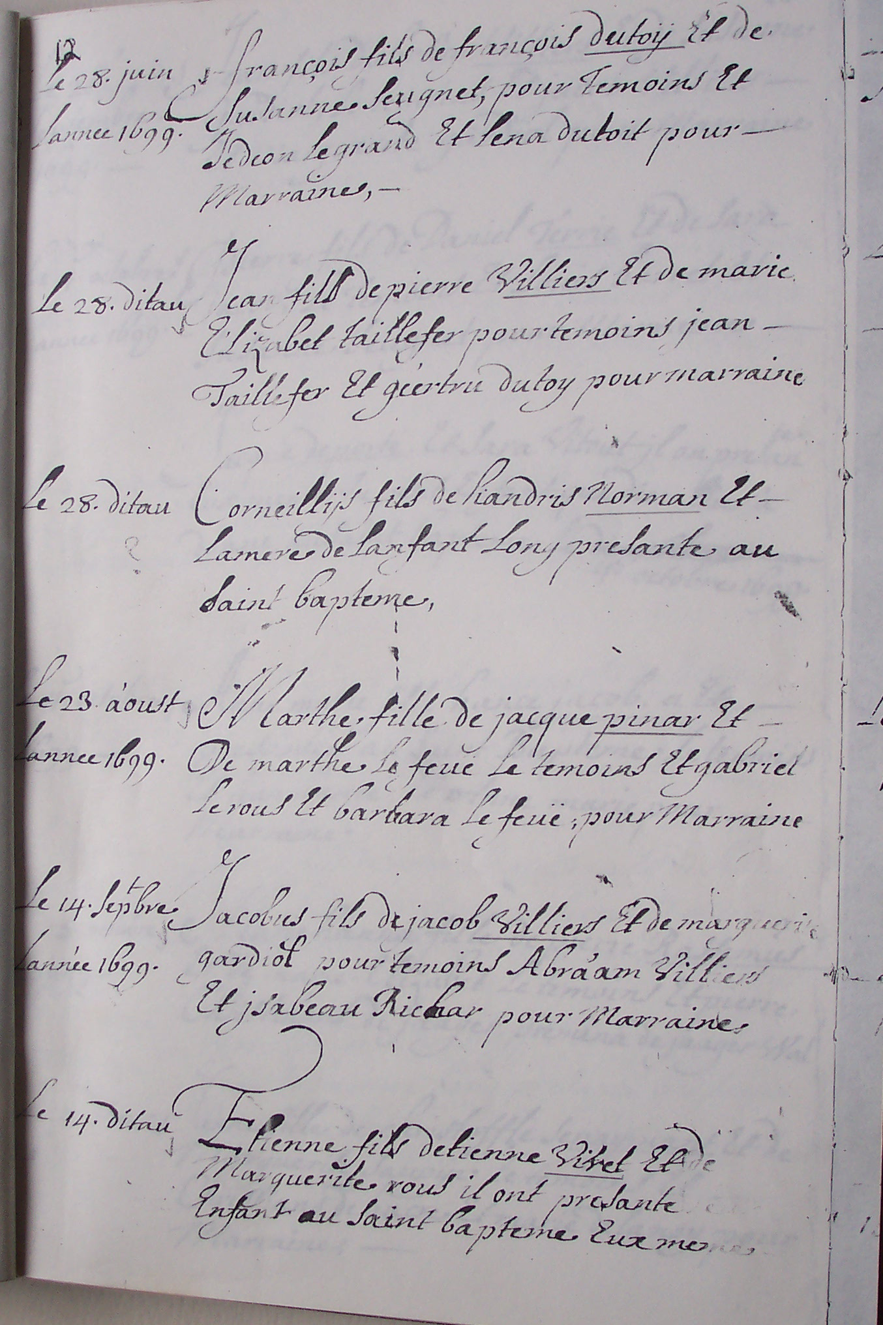 12
Le 28. juin
lannee 1699.
François fils de françois dutoij Et de
Susanne Seugnet, pour Temoins Et
Jedeon Legrand Et Lena dutoit pour —
Marraines, —
Le 28. ditau
Jean fills de pierre Villiers Et de marie
Elizabet taillefer pour temoins jean —
Taillefer Et geertru dutoy pour marraine
Le 28. ditau
Corneillijs fils de handris Norman Et —
Lamere de Lanfant Long presante au
Saint bapteme,
Le 23 aoust
lannee 1699.
Marthe fille de jacque pinar Et —
De marthe Le feue Le temoins Et gabriel
Lerous Et barbara Le feuë, pour Marraine
Le 14. Septbre
lannée 1699.
Jacobus fils de jacob Villiers Et de margueri
gardiol pour temoins Abraam Villiers
Et jsabeau Richar pour Marraines
Le 14. ditau
Etienne fils detienne Viret Et de
Marguerite rous il ont presante
Enfant au Saint bapteme Eux meme